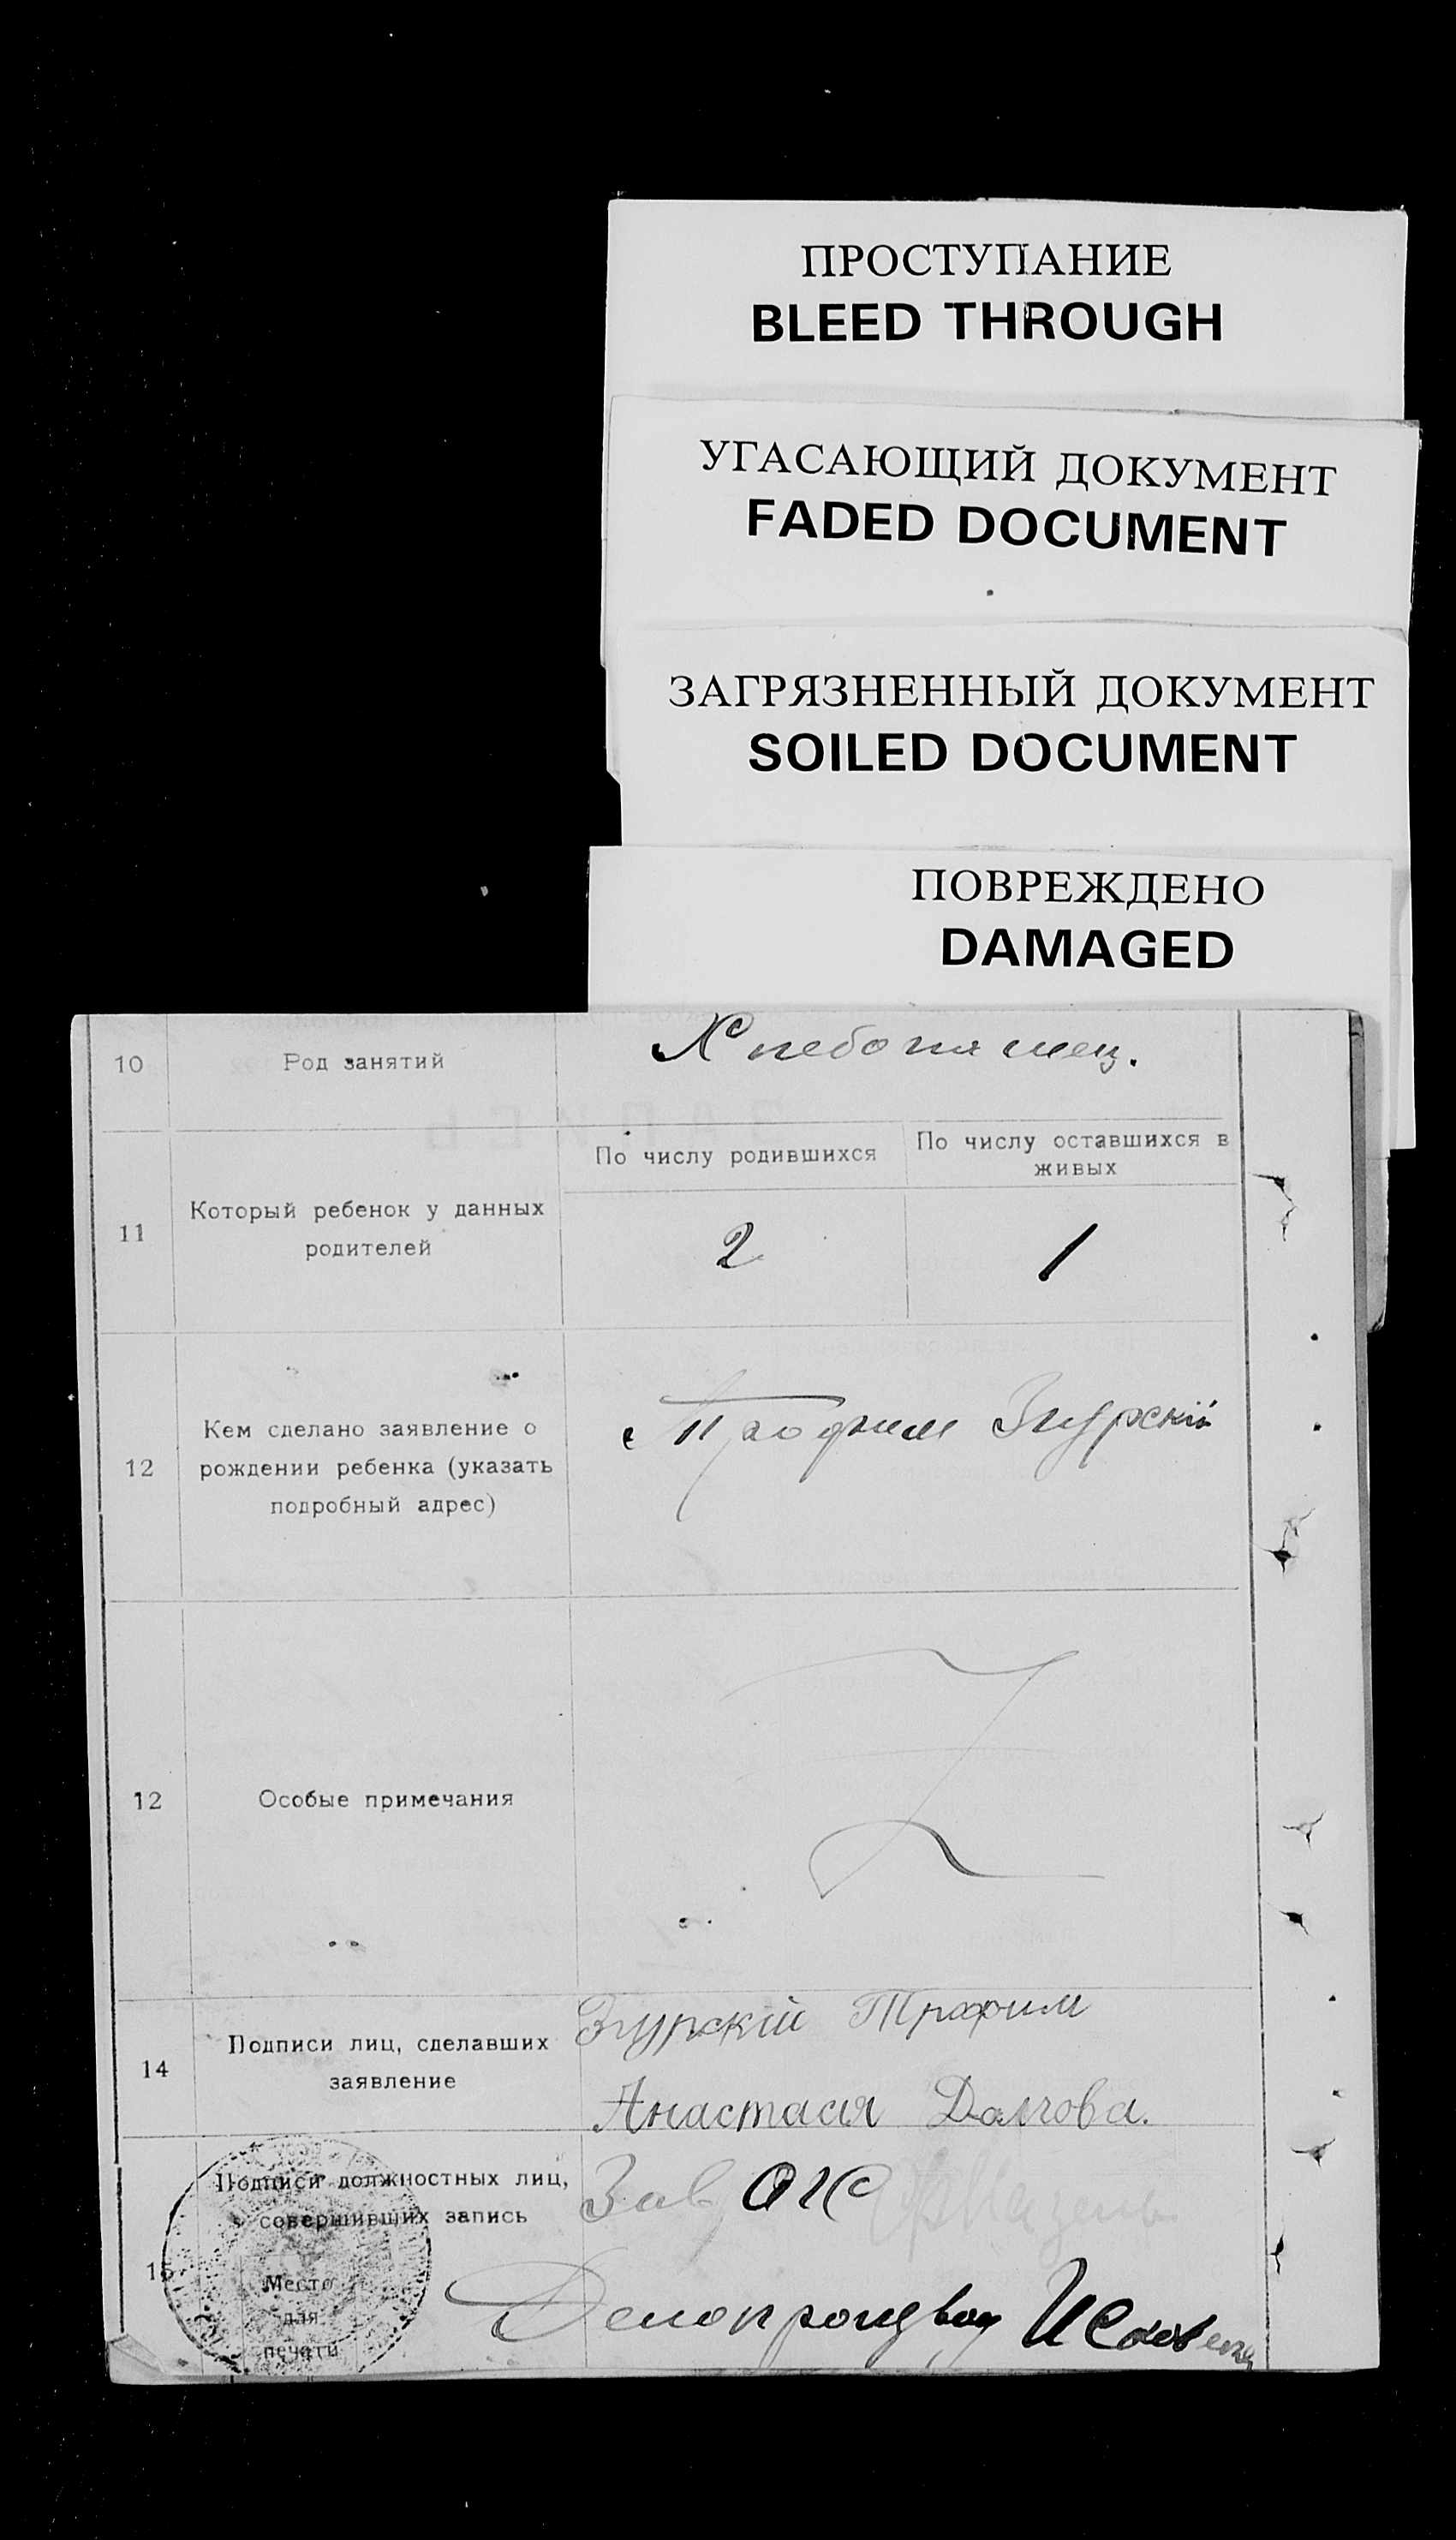 ПРОСТУПАНИЕ
BLEED THROUGH
УГАСАЮЩИЙ ДОКУМЕНТ
FADED DOCUMENT
ЗАГРЯЗНЕННЫЙ ДОКУМЕНТ
SOILED DOCUMENT
ПОВРЕЖДЕНО
DAMAGED
10 Род занятий Хлебопашец.
По числу родившихся
По числу оставшихся в
живых
11
Который ребенок у данных
родителей
2 1
12
Кем сделано заявление о
рождении ребенка (указать
подробный адрес)
Трофим Згурскій
12 Особые примечания
14
Подписи лиц, сделавших
заявление
Згурскій Трофим
Анастасія Долгова.
15
Подписи должностных лиц,
совершивших запись
Место
для
печати
Зав
Делопроизвод